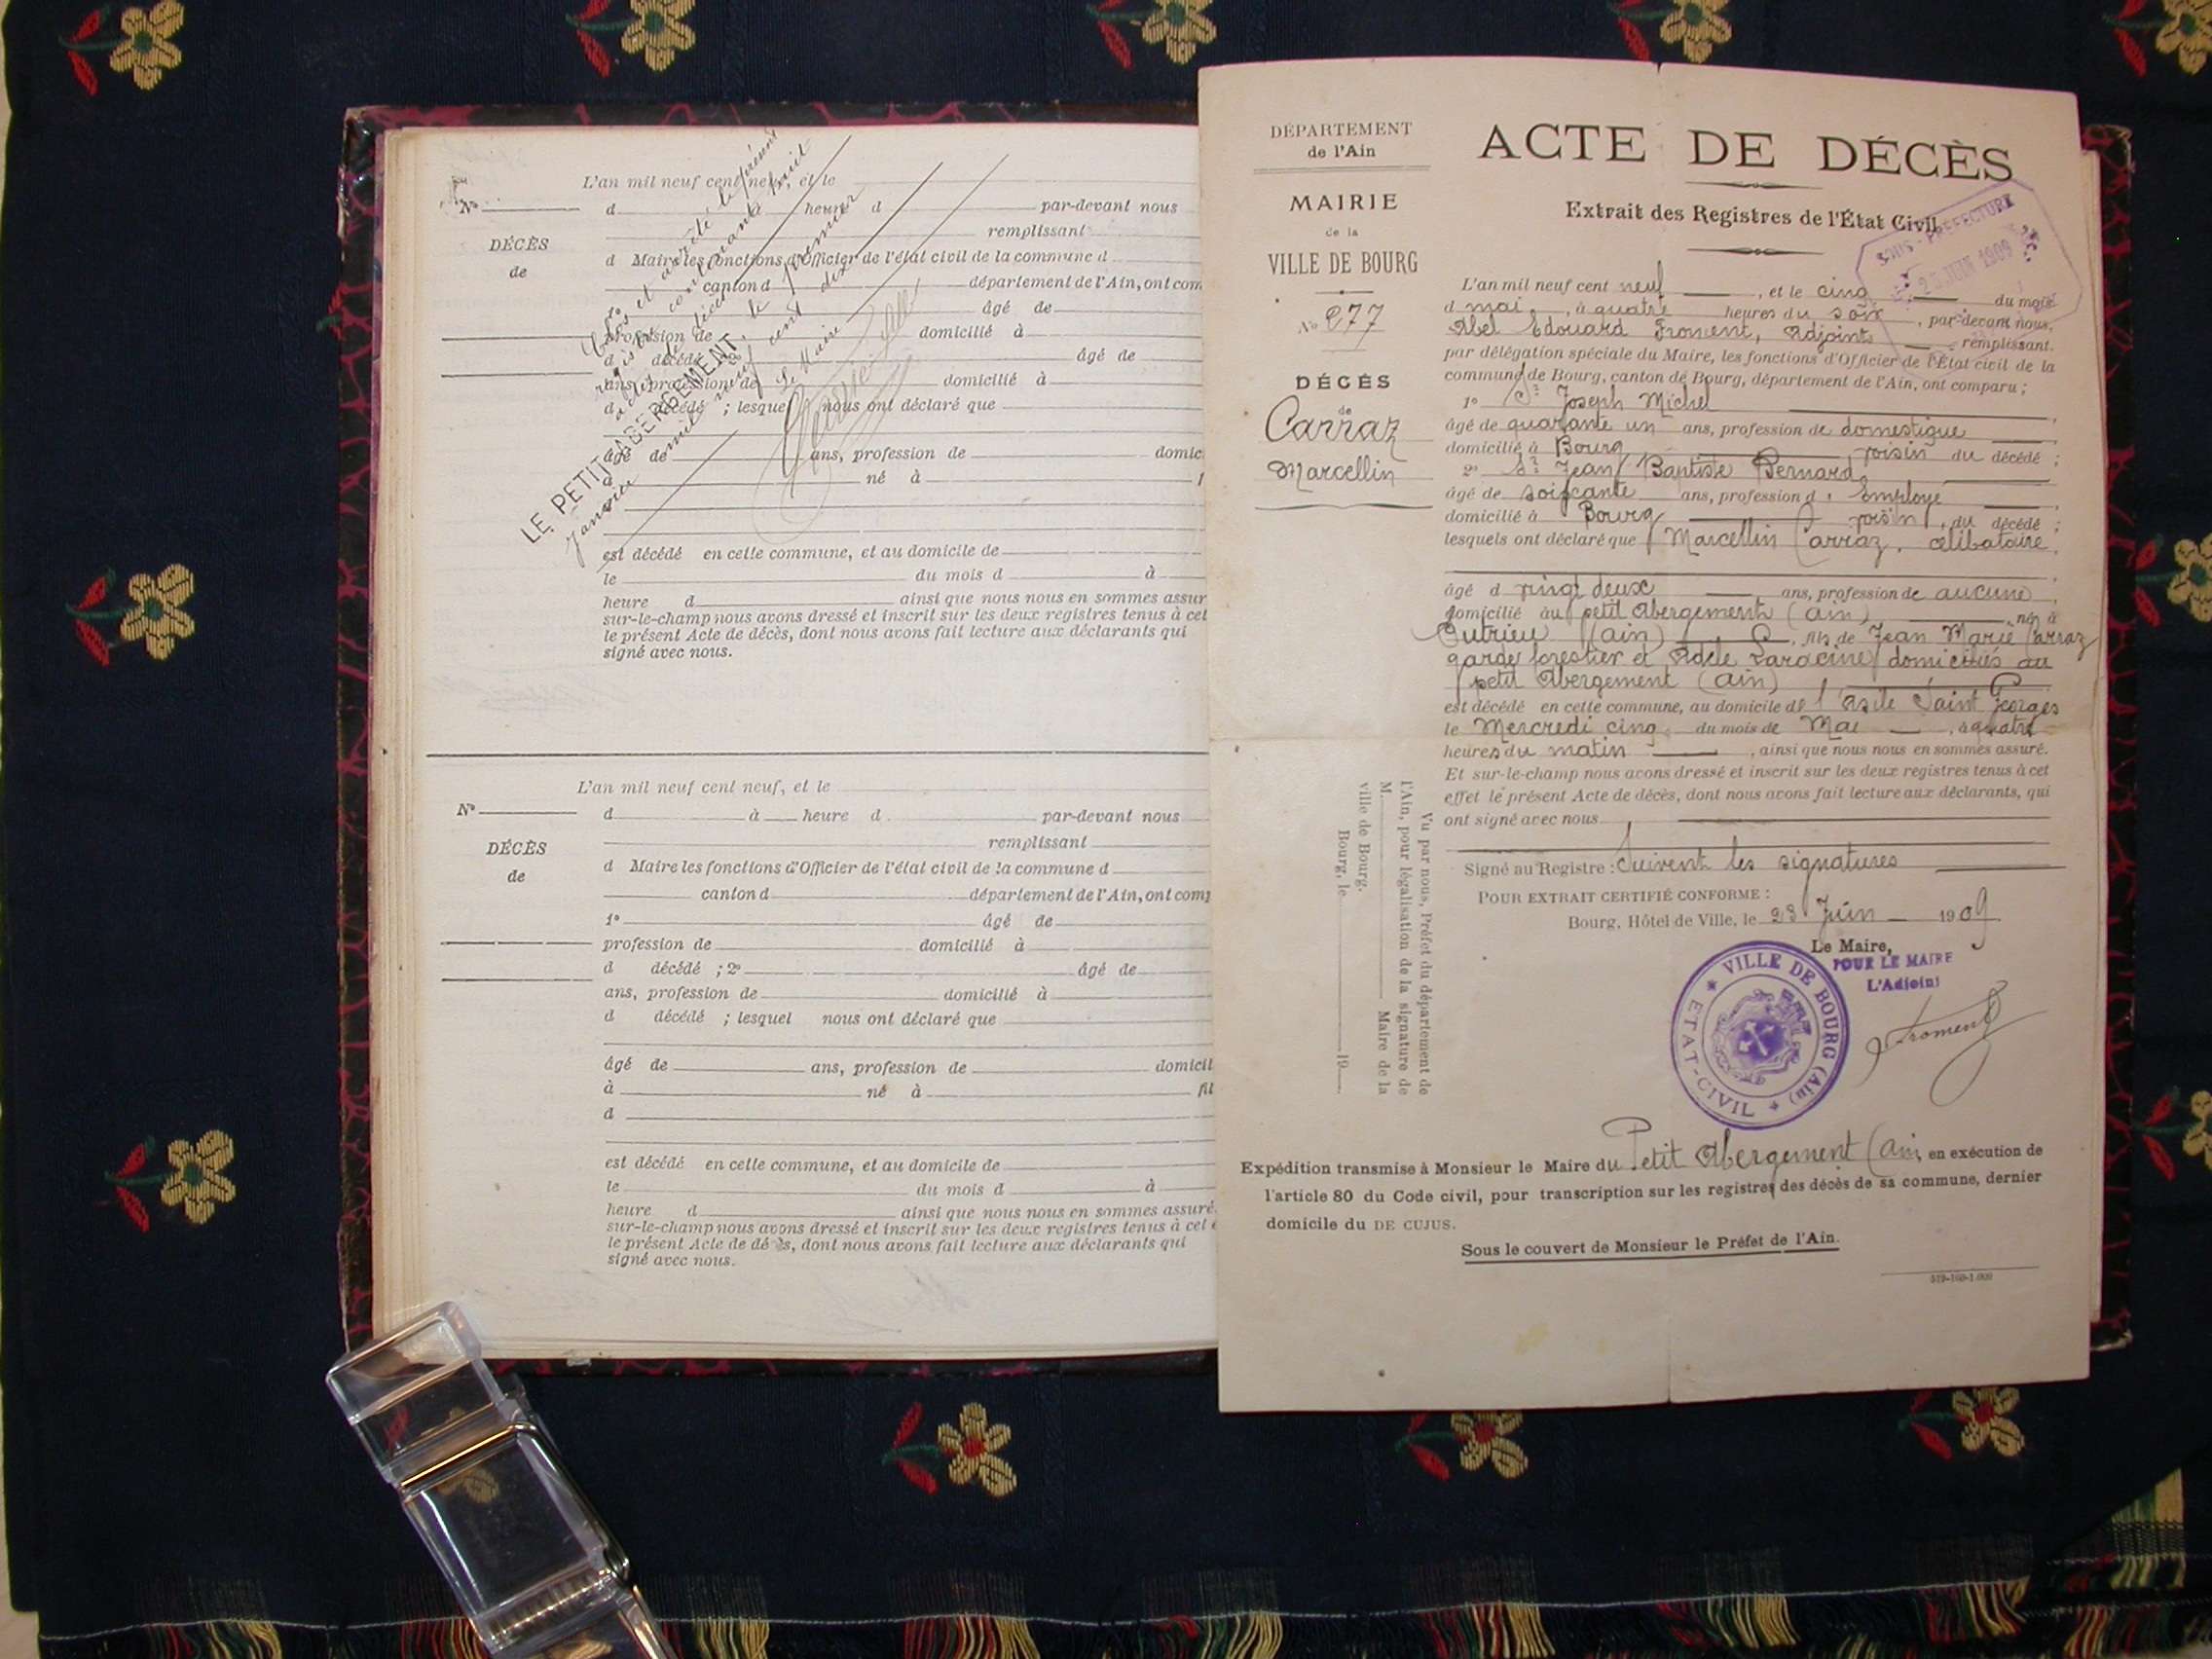 L'an mil neuf cent neuf, et le
Nº
d à heure d par-devant nous
remplissant
DÉCÈS
de
d Maire les fonctions d'Officier de l'état civil de la commune d
canton d département de l'Ain, ont com
1º âgé de
profession de domicilié à
d décédé ; 2º âgé de
ans, profession de domicilié à
d décédé ; lesquel nous ont déclaré que
âgé de ans, profession de domic
à né à f
est décédé en cette commune, et au domicile de
le du mois d à
heure d ainsi que nous nous en sommes assur
sur-le-champ nous avons dressé et inscrit sur les deux registres tenus à cet
le présent Acte de décès, dont nous avons fait lecture aux déclarants qui
signé avec nous.
Clos et arrêté le présent
registre contenant huit
actes de décès
LE PETIT ABERGEMENT, le premier
Janvier mil neuf cent dix
Le Maire
L'an mil neuf cent neuf, et le
Nº
d à heure d par-devant nous
remplissant
DÉCÈS
de
d Maire les fonctions d'Officier de l'état civil de la commune d
canton d département de l'Ain, ont comp
1º âgé de
profession de domicilié à
d décédé ; 2º âgé de
ans, profession de domicilié à
d décédé ; lesquel nous ont déclaré que
âgé de ans, profession de domicil
à né à fil
d
est décédé en cette commune, et au domicile de
le du mois d à
heure d ainsi que nous nous en sommes assuré.
sur-le-champ nous avons dressé et inscrit sur les deux registres tenus à cet e
le présent Acte de dé ès, dont nous avons fait lecture aux déclarants qui
signé avec nous.
DÉPARTEMENT
de l'Ain
MAIRIE
de la
VILLE DE BOURG
Nº 277
DÉCÈS
de
Carraz
Marcellin
ACTE DE DÉCÈS
Extrait des Registres de l'État Civil
SOUS-PRÉFECTURE
25 JUIN 1909
L'an mil neuf cent neuf, et le cinq du mois
d mai, à quatre heures du soir, par-devant nous,
Abel Édouard Froment, Adjoint remplissant.
par délégation spéciale du Maire, les fonctions d'Officier de l'État civil de la
commune de Bourg, canton de Bourg, département de l'Ain, ont comparu ;
1º Sr Joseph Michel
âgé de quarante un ans, profession de domestique
domicilié à Bourg voisin du décédé ;
2º Sr Jean Baptiste Bernard
âgé de soixante ans, profession d' employé
domicilié à Bourg voisin, du décédé ;
lesquels ont déclaré que Marcellin Carraz, célibataire,
âgé d vingt deux ans, profession de aucune
domicilié au petit Abergement (ain) né à
Outrieu (ain), fils de Jean Marie Carraz
garde forestier et Adèle Laracine domiciliés au
petit Abergement (ain)
est décédé en cette commune, au domicile de l'Asile Saint Georges
le Mercredi cinq du mois de Mai, à quatre
heures du matin, ainsi que nous nous en sommes assuré.
Et sur-le-champ nous avons dressé et inscrit sur les deux registres tenus à cet
effet le présent Acte de décès, dont nous avons fait lecture aux déclarants, qui
ont signé avec nous
Signé au Registre : Suivent les signatures
POUR EXTRAIT CERTIFIÉ CONFORME :
Bourg, Hôtel de Ville, le 23 Juin 1909
Le Maire,
POUR LE MAIRE
L'Adjoint
Froment
VILLE DE BOURG (Ain)
ETAT-CIVIL
Vu par nous, Préfet du département de
l'Ain, pour légalisation de la signature de
M. Maire de la
ville de Bourg.
Bourg, le 19
Expédition transmise à Monsieur le Maire du Petit Abergement (Ain) en exécution de
l'article 80 du Code civil, pour transcription sur les registres des décès de sa commune, dernier
domicile du DE CUJUS.
Sous le couvert de Monsieur le Préfet de l'Ain.